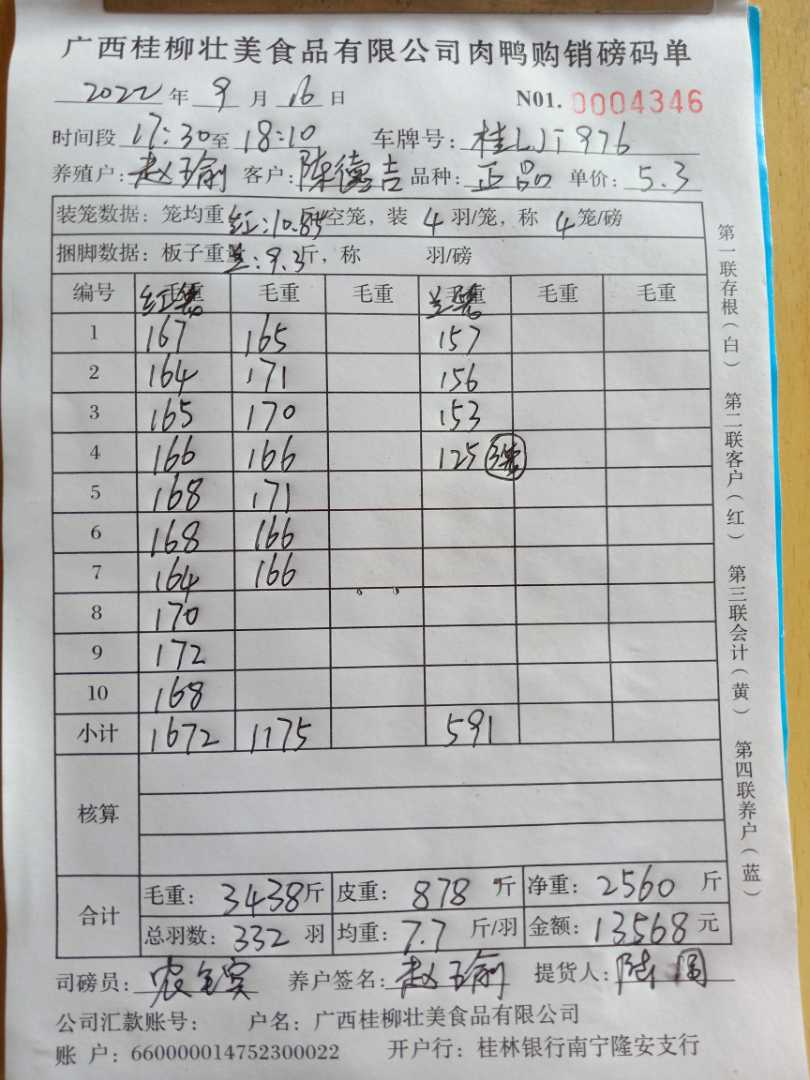 广西桂柳壮美食品有限公司肉鸭购销磅码单
2022 年 9 月 16 日 N01. 0004346
时间段 17:30 至 18:10 车牌号: 桂LJT976
养殖户: 赵玉瑜 客户: 陈德吉 品种: 正品 单价: 5.3
装笼数据: 笼均重 红:10.85 斤/空笼, 装 4 羽/笼, 称 4 笼/磅
捆脚数据: 板子重 兰:9.3 斤, 称 羽/磅
编号 毛重 红笼 毛重 毛重 毛重 兰笼 毛重 毛重
1 167 165 157
2 164 171 156
3 165 170 153
4 166 166 125 3笼
5 168 171
6 168 166
7 164 166
8 170
9 172
10 168
小计 1672 1175 591
核算
合计 毛重: 3438 斤 皮重: 878 斤 净重: 2560 斤
总羽数: 332 羽 均重: 7.7 斤/羽 金额: 13568 元
司磅员: 养户签名: 赵玉瑜 提货人: 陆
公司汇款账号: 户名: 广西桂柳壮美食品有限公司
账 户: 660000014752300022 开户行: 桂林银行南宁隆安支行
第一联存根(白) 第二联客户(红) 第三联会计(黄) 第四联养户(蓝)